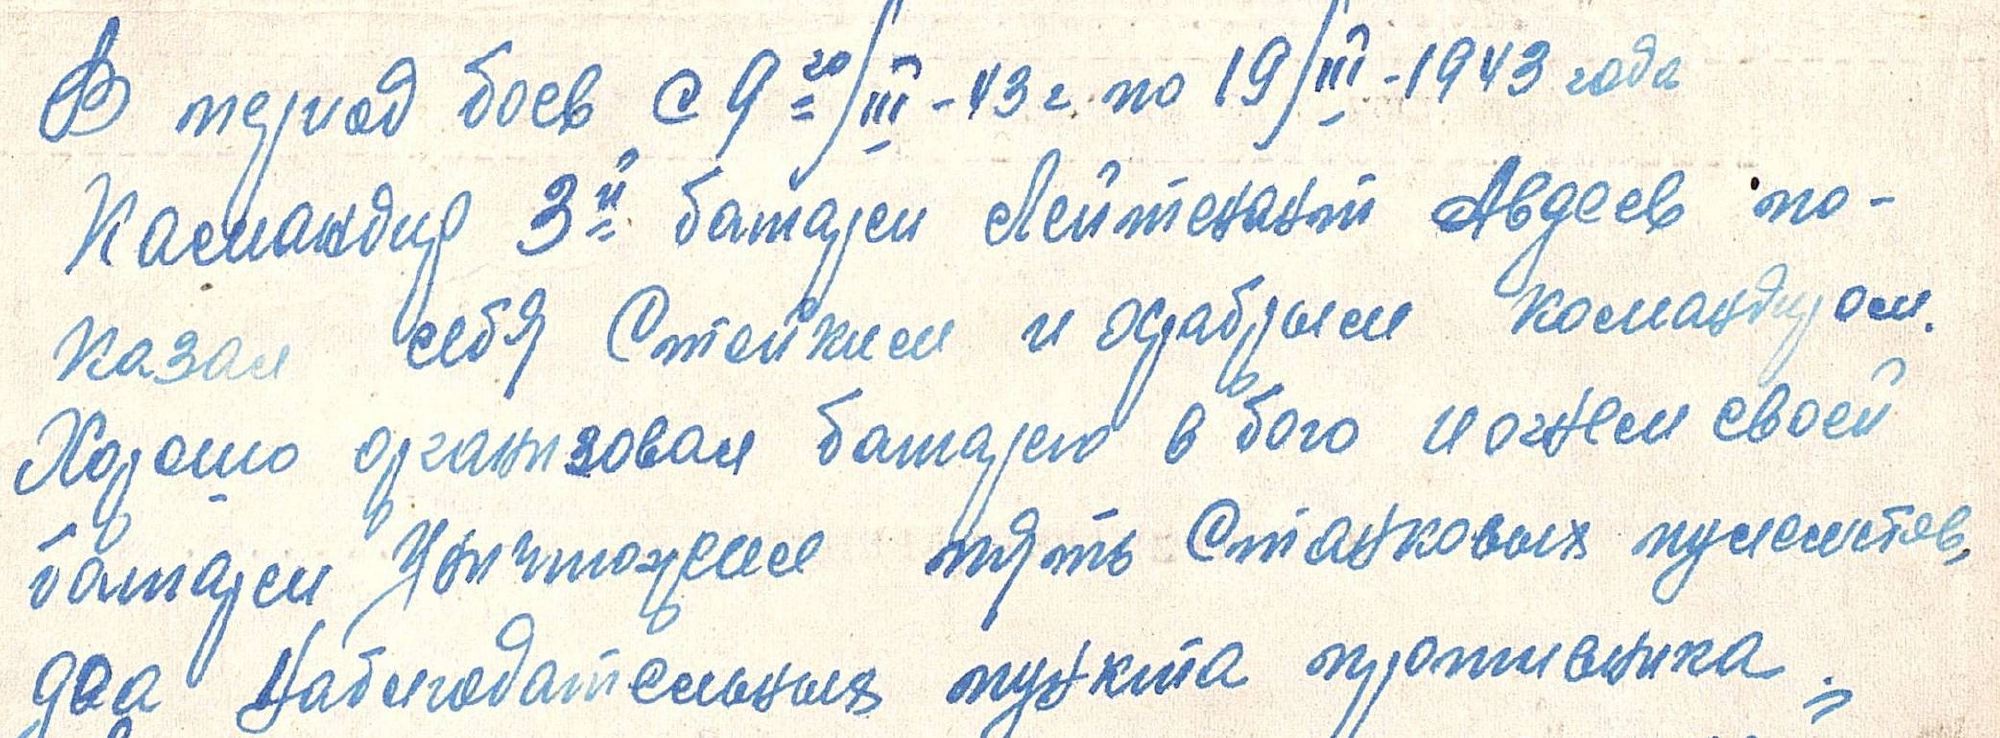 В период боев с 9го/III-43г. по 19/III-1943 года
Командир 3й батареи Лейтенант Авдеев по-
казал себя Стойким и храбрым командиром.
Хорошо организовал батарею в бою и огнем своей
батареи Уничтожил пять Станковых пулеметов,
два Наблюдательных пункта противника,